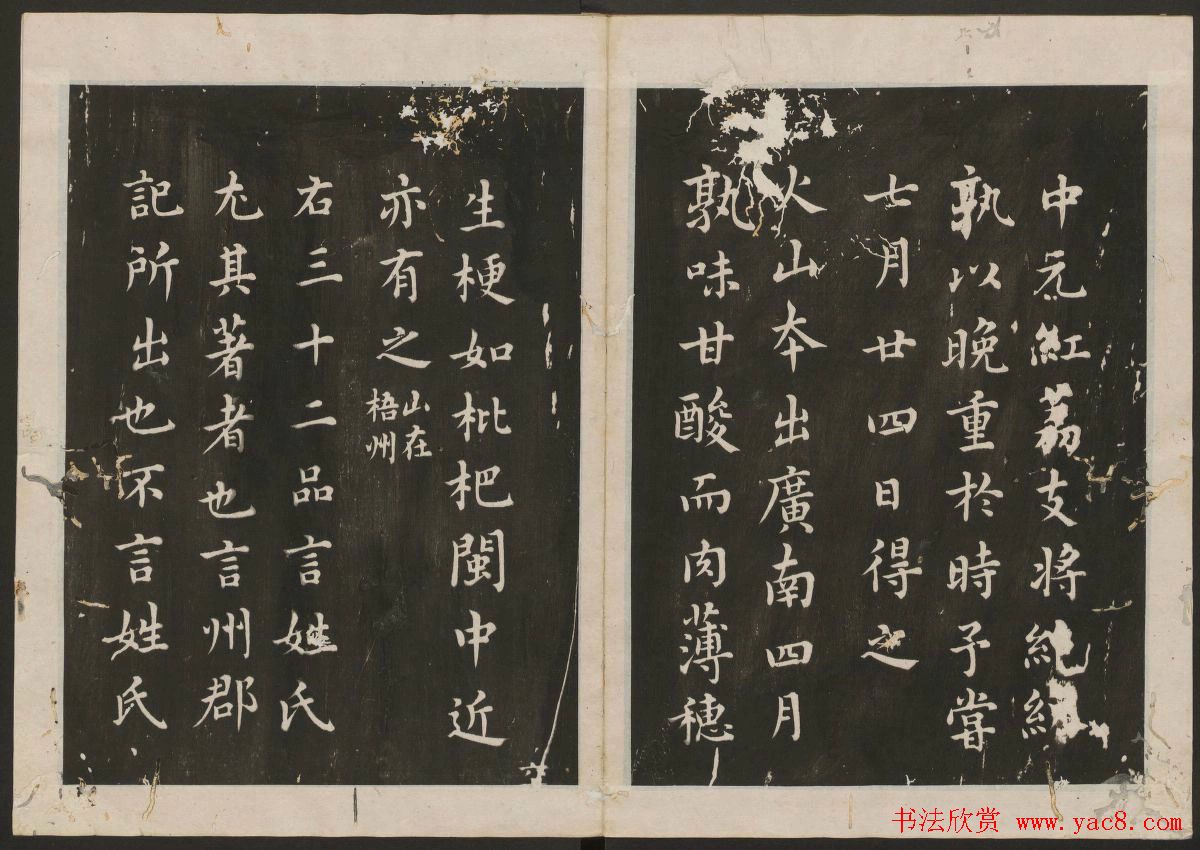 中元紅荔支將絶纔
孰以晚重於時予嘗
七月廿四日得之
火山本出廣南四月
孰味甘酸而肉薄穗
生梗如枇杷閩中近
亦有之山在梧州
右三十二品言姓氏
尤其著者也言州郡
記所出也不言姓氏
书法欣赏 www.yac8.com